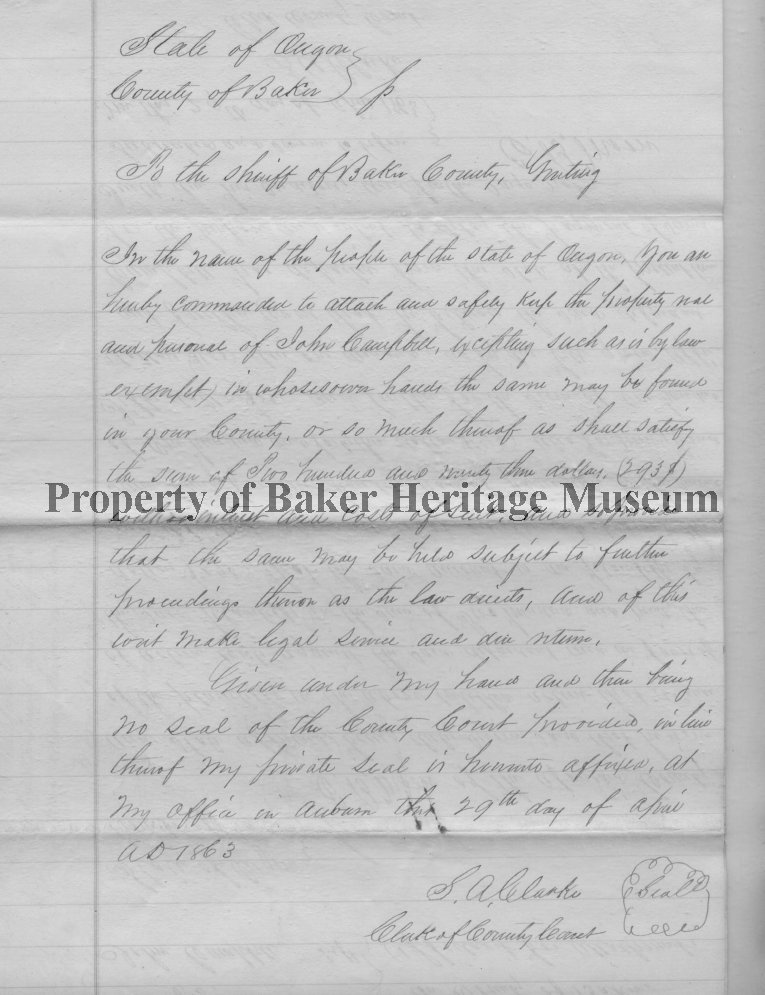 State of Oregon
County of Baker } ss
To the sheriff of Baker County, Greeting
In the name of the people of the state of Oregon, You are
hereby commanded to attach and safely keep the property real
and personal of John Campbell, excepting such as is by law
exempt) in whosesoever hands the same may be found
in your County, or so much thereof as shall satisfy
the sum of Two hundred and ninety three dollars, (293$)
Property of Baker Heritage Museum
with interest and costs of suit, and so provide
that the same may be held subject to further
proceedings thereon as the law directs, and of this
writ make legal service and due return.
Given under my hand and there being
no seal of the County Court provided, in lieu
thereof my private seal is hereunto affixed, at
my office in Auburn this 29th day of April
AD 1863
S. A. Clarke
Seal
Clerk of County Court